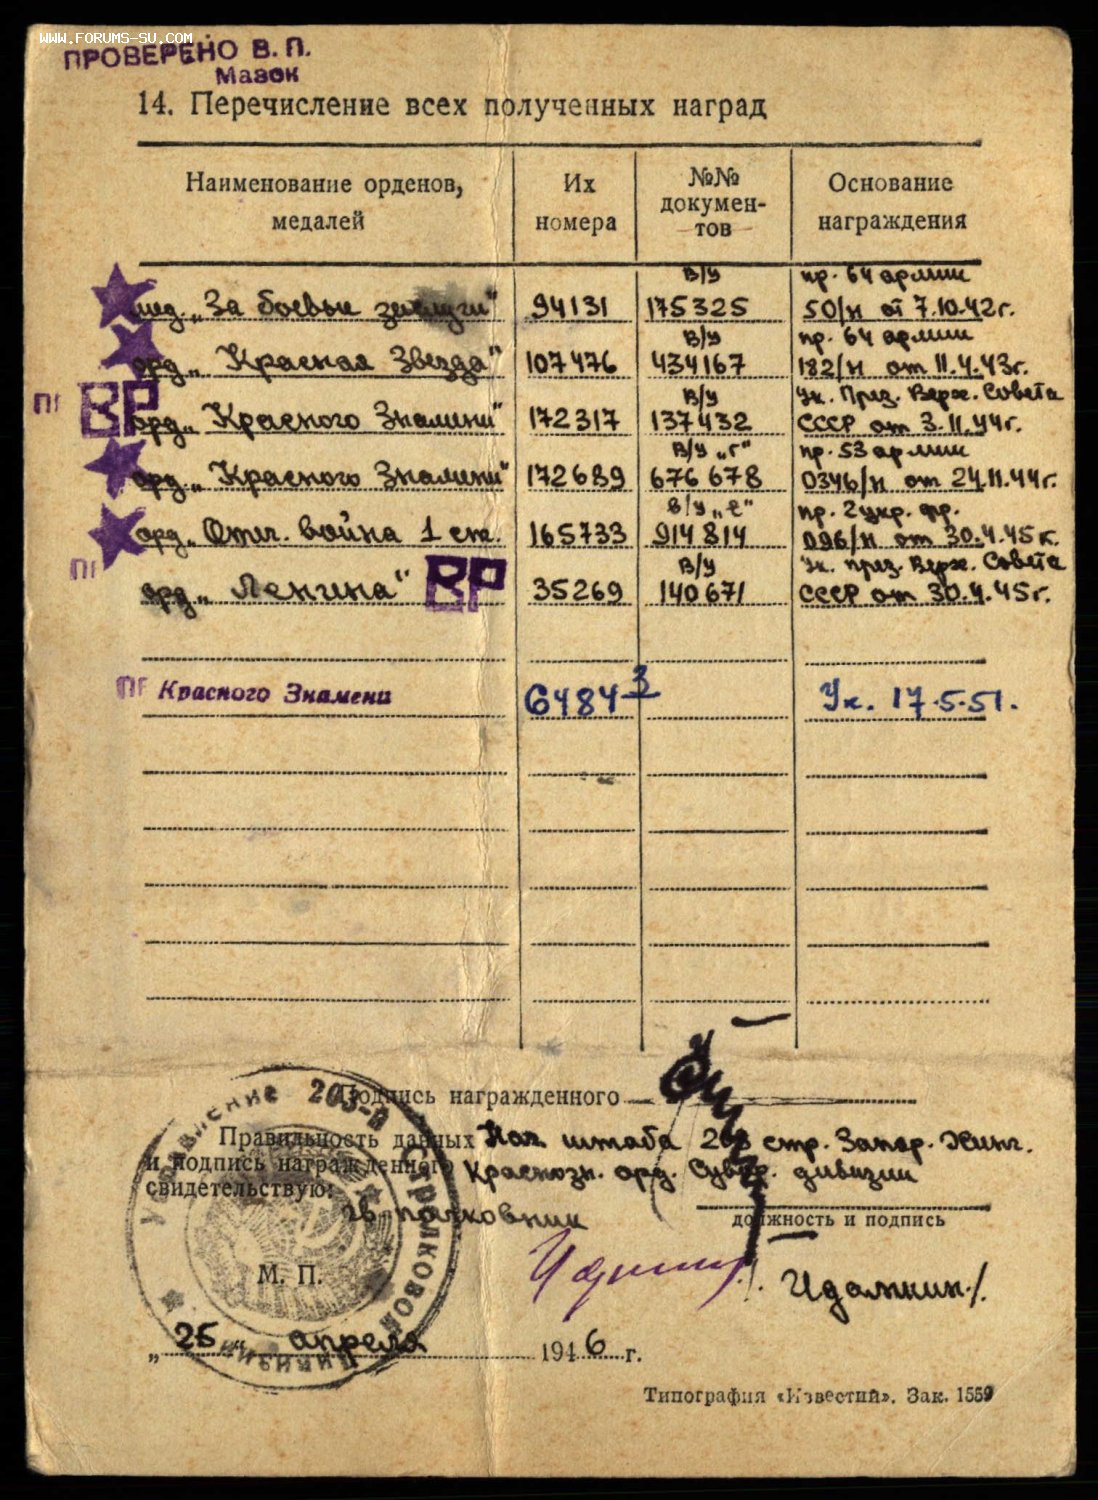 WWW.FORUMS-SU.COM
ПРОВЕРЕНО В. П.
Мазок
14. Перечисление всех полученных наград
Наименование орденов, медалей
Их номера
№№ докумен-тов
Основание награждения
В/У пр. 64 армии
мед. „За боевые заслуги" 94131 175325 50/н от 7.10.42г.
В/У пр. 64 армии
орд. „Красная Звезда" 107476 434167 182/н от 11.4.43г.
ПГ ВР В/У Ук. През. Верх. Совета
орд. „Красного Знамени" 172317 137432 СССР от 3.11.44г.
В/У „г" пр. 53 армии
орд. „Красного Знамени" 172689 676678 0346/н от 24.11.44г.
В/У „е" пр. 2 укр. фр.
орд. „Отеч. война 1 ст. 165733 914814 096/н от 30.4.45
ПГ В/У Ук. през. Верх. Совета
орд. „Ленина" ВР 35269 140671 СССР от 30.4.45г.
ПГ Красного Знамени 64843 Ук. 17.5.51.
Подпись награжденного
Правильность данных Нач штаба 203 стр. Запор. Хинг.
и подпись награжденного Краснозн. орд. Сувор. дивизии
свидетельствую:
полковник
должность и подпись
М. П.
/Идамкин/
„25" апреля 1946 г.
Управление 203-й Стрелковой Дивизии
Типография «Известий». Зак. 1559